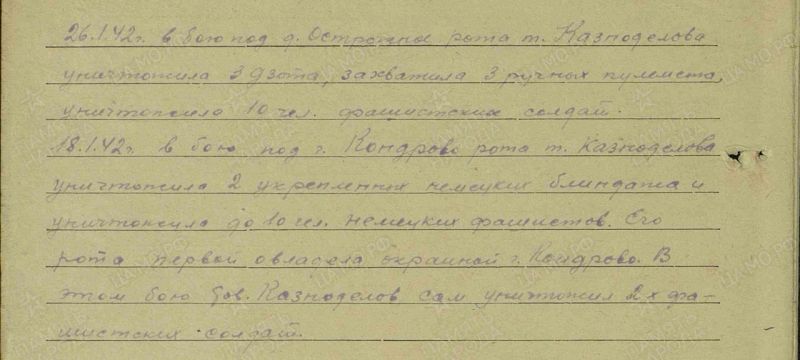 26.1.42г. в бою под д. Острожное рота т. Казноделова
уничтожила 3 дзота, захватила 3 ручных пулемета,
уничтожила 10 чел. фашистских солдат.
18.1.42г. в бою под г. Кондрово рота т. Казноделова
уничтожила 2 укрепленных немецких блиндажа и
уничтожила до 10 чел. немецких фашистов. Его
рота первой овладела окраиной г. Кондрово. В
этом бою тов. Казноделов сам уничтожил 2х фа-
шистских солдат.